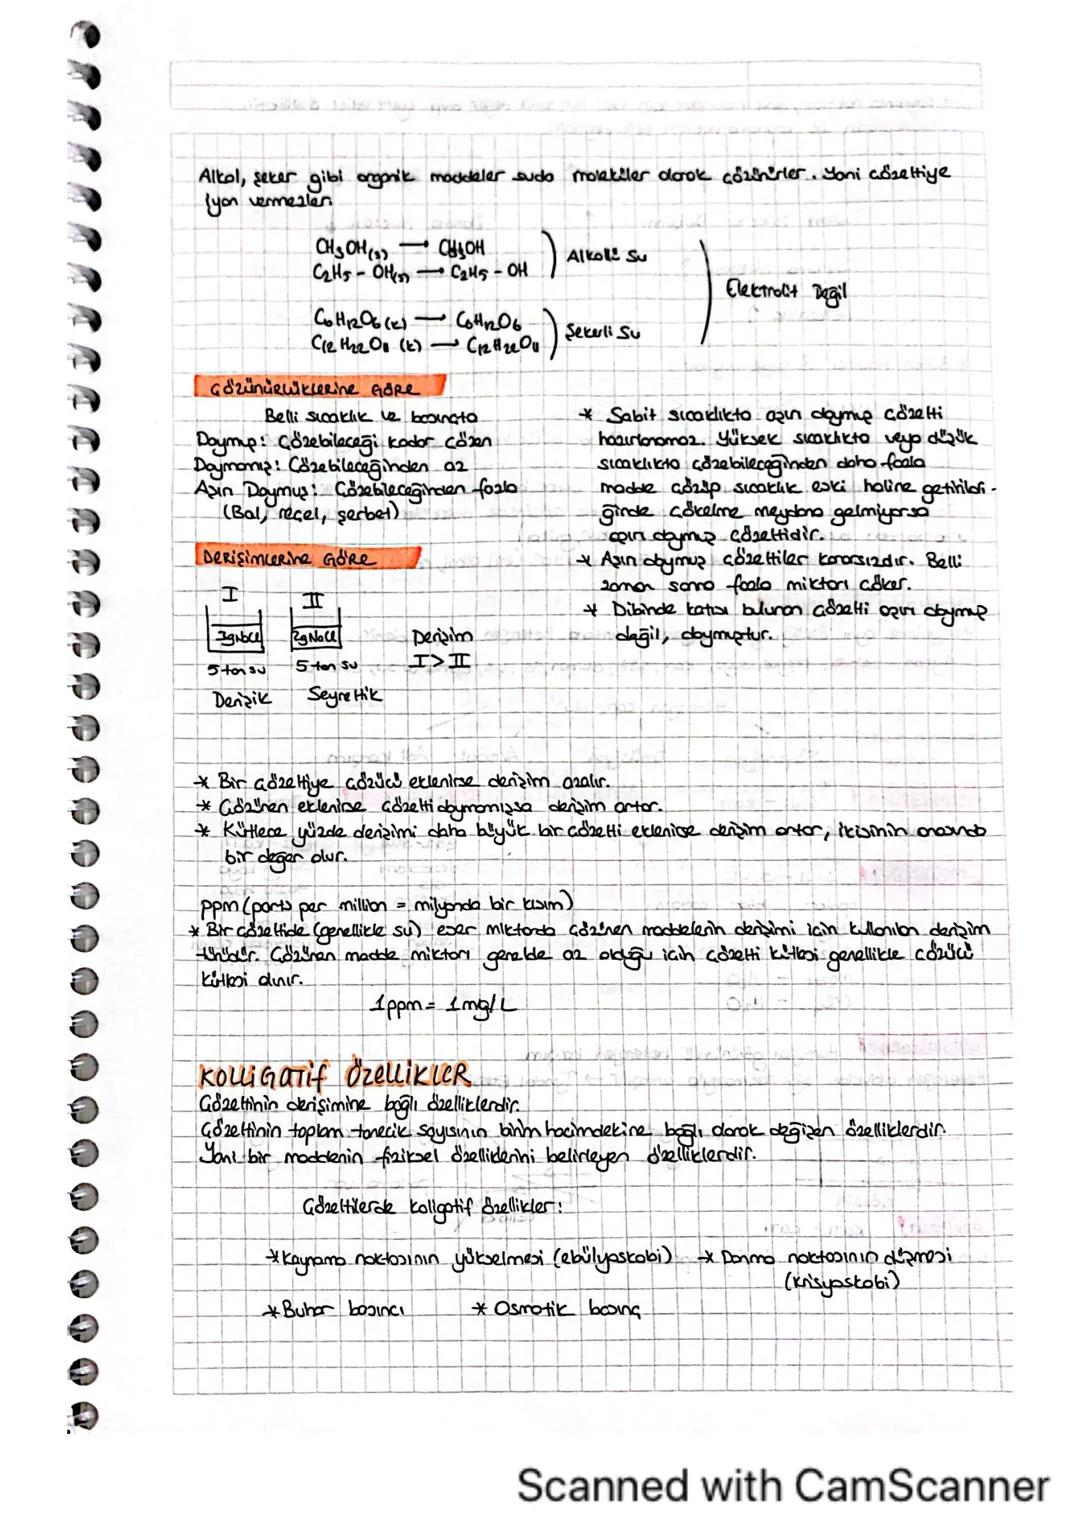 Alkol, şeker gibi organik maddeler suda moleküler olarak çözünürler. Yani çözeltiye
iyon vermezler.
CH3OH(s) → CH3OH
C2H5 - OH(s) → C2H5 - OH
Alkollü Su
C6H12O6 (k) → C6H12O6
C12H22O11 (k) → C12H22O11
Şekerli Su
Elektrolit Değil
ÇÖZÜNÜRLÜKLERİNE GÖRE
Belli sıcaklık ve basınçta
Doymuş: Çözebileceği kadar çözen
Doymamış: Çözebileceğinden az
Aşırı Doymuş: Çözebileceğinden fazla
(Bal, reçel, şerbet)
* Sabit sıcaklıkta aşırı doymuş çözelti
hazırlanamaz. Yüksek sıcaklıkta veya düşük
sıcaklıkta çözebileceğinden daha fazla
madde çözüp sıcaklık eski haline getirildi-
ğinde çökelme meydana gelmiyorsa
aşırı doymuş çözeltidir.
* Aşırı doymuş çözeltiler kararsızdır. Belli
zaman sonra fazla miktarı çöker.
* Dibinde katısı bulunan çözelti aşırı doymuş
değil, doymuştur.
DERİŞİMLERİNE GÖRE
I
II
3gNaCl
2gNaCl
5 ton su
5 ton su
Derişik
Seyreltik
Derişim
I > II
* Bir çözeltiye çözücü eklenirse derişim azalır.
* Çözünen eklenirse çözelti doymamışsa derişim artar.
* Kütlece yüzde derişimi daha büyük bir çözelti eklenirse derişim artar, ikisinin arasında
bir değer olur.
ppm (parts per million = milyonda bir kısım)
* Bir çözeltide (genellikle su) eser miktarda çözünen maddelerin derişimi için kullanılan derişim
türüdür. Çözünen madde miktarı genelde az olduğu için çözelti kütlesi genellikle çözücü
kütlesi alınır.
1ppm = 1mg/L
KOLLİGATİF ÖZELLİKLER
Çözeltinin derişimine bağlı özelliklerdir.
Çözeltinin toplam tanecik sayısının birim hacimdekine bağlı olarak değişen özelliklerdir.
Yani bir maddenin fiziksel özelliklerini belirleyen özelliklerdir.
Çözeltilerde koligatif özellikler:
* Kaynama noktasının yükselmesi (ebülyoskobi)
* Donma noktasının düşmesi
(krisyoskobi)
* Buhar basıncı
* Osmotik basınç
Scanned with CamScanner